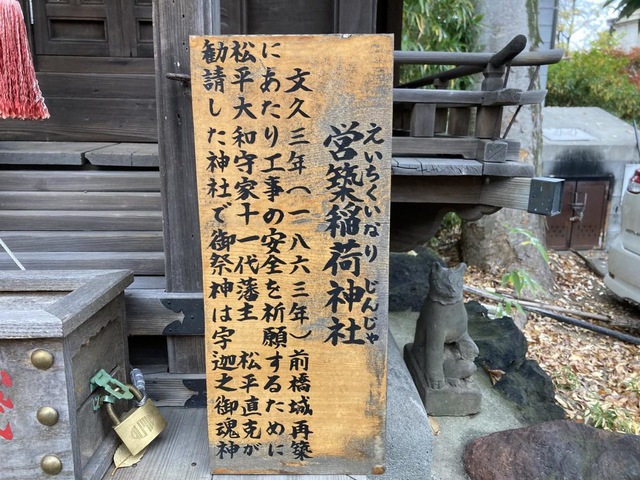 えいちくいなり じんじゃ
営築稲荷神社
文久三年(一八六三年)前橋城再築
にあたり工事の安全を祈願するために
松平大和守家十一代藩主 松平直克が
勧請した神社で御祭神は宇迦之御魂神